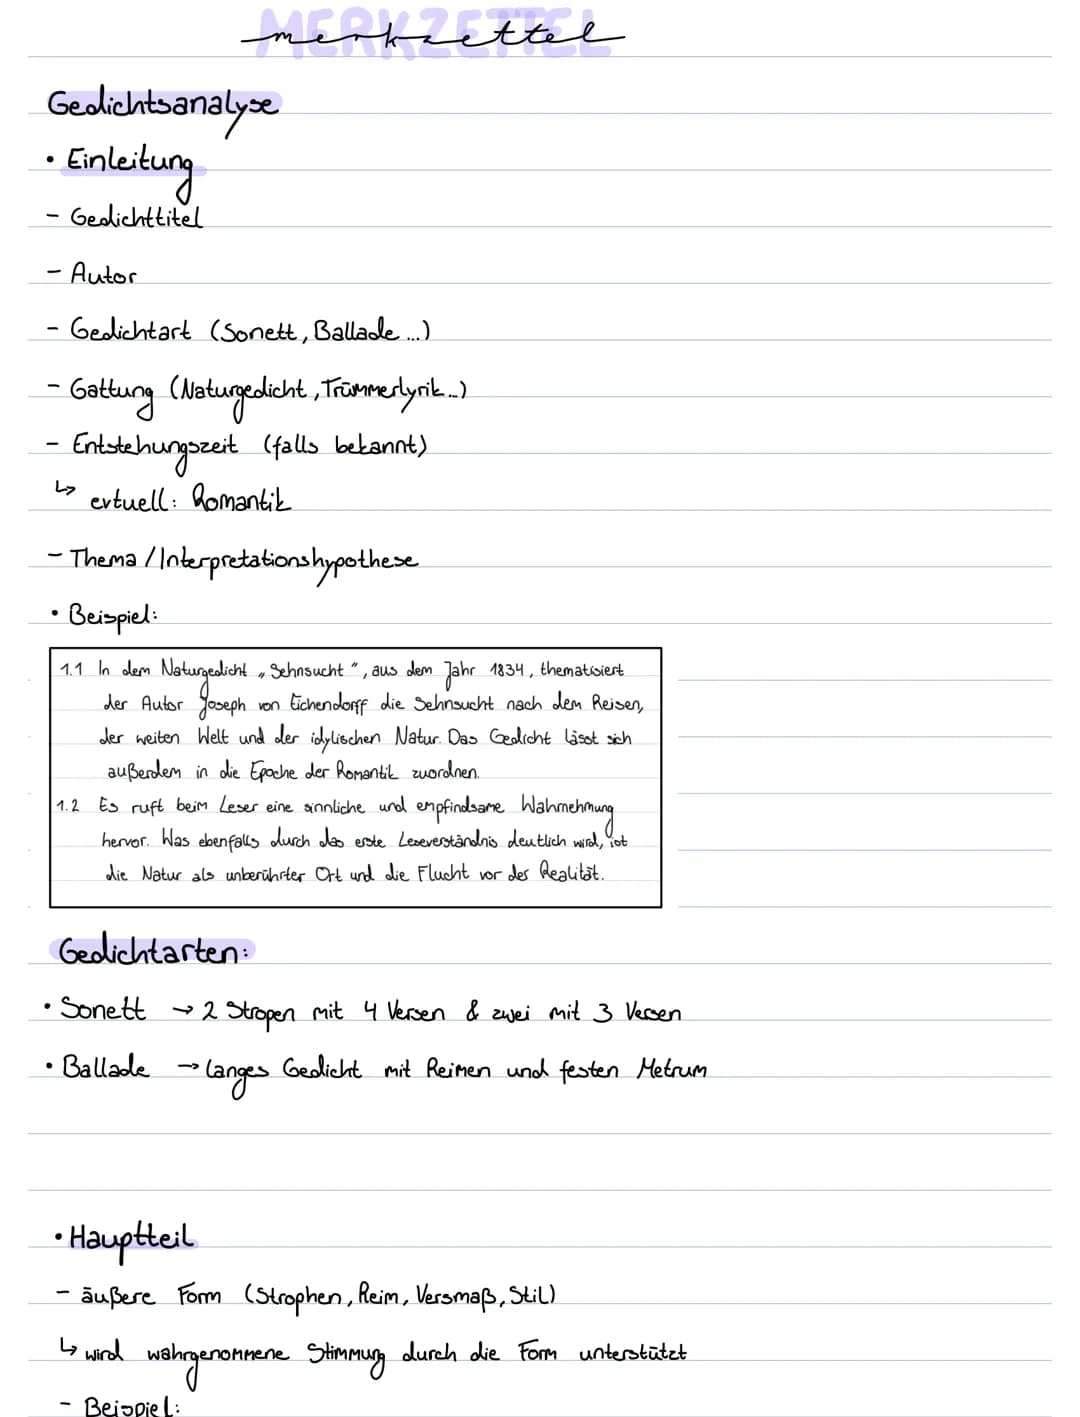 MERKZETTEL
merkzettel
Gedichtsanalyse
• Einleitung
- Gedichttitel
- Autor
- Gedichtart (Sonett, Ballade ...)
- Gattung (Naturgedicht, Trümmerlyrik...)
- Entstehungszeit (falls bekannt)
↳ evtuell: Romantik
- Thema / Interpretationshypothese
• Beispiel:
1.1 In dem Naturgedicht „Sehnsucht“, aus dem Jahr 1834, thematisiert
der Autor Joseph von Eichendorff die Sehnsucht nach dem Reisen,
der weiten Welt und der idylischen Natur. Das Gedicht lässt sich
außerdem in die Epoche der Romantik zuordnen.
1.2 Es ruft beim Leser eine sinnliche und empfindsame Wahrnehmung
hervor. Was ebenfalls durch das erste Leseverständnis deutlich wird, ist
die Natur als unberührter Ort und die Flucht vor der Realität.
Gedichtarten:
• Sonett → 2 Stropen mit 4 Versen & zwei mit 3 Versen
• Ballade → langes Gedicht mit Reimen und festen Metrum
• Hauptteil
- äußere Form (Strophen, Reim, Versmaß, Stil)
↳ wird wahrgenommene Stimmung durch die Form unterstützt
- Beispiel: